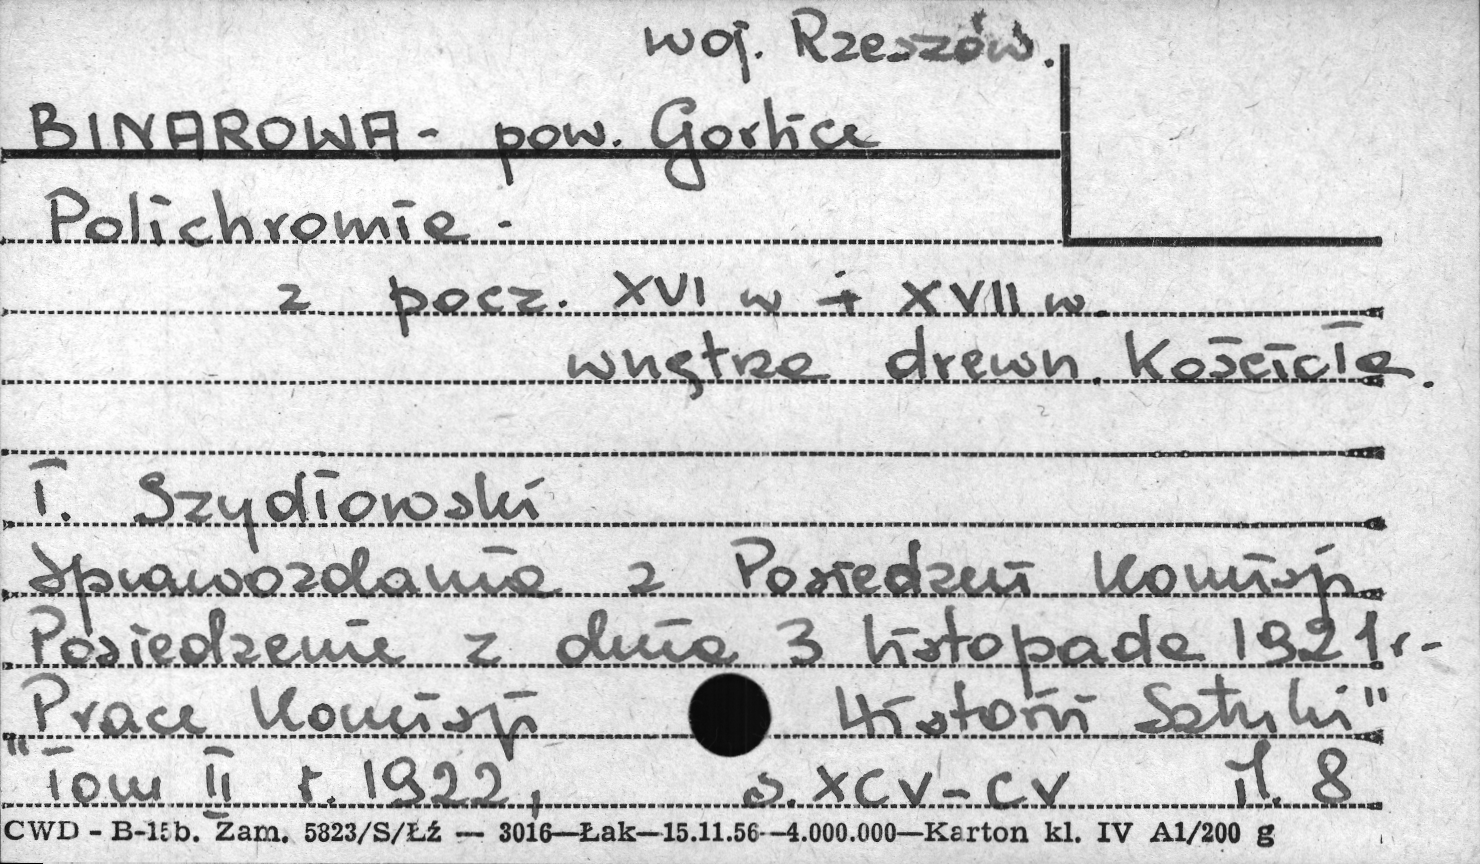 woj. Rzeszów.
BINAROWA - pow. Gorlice
Polichromie -
z pocz. XVI w i XVII w.
wnętrze drewn. Kościoła.
T. Szydłowski
Sprawozdania z Posiedzeń Komisji
Posiedzenie z dnia 3 listopada 1921 r -
Prace Komisji Historii Sztuki"
"Tom II r. 1922, s. XCV-CV il. 8
CWD - B-15b. Zam. 5823/S/Łź — 3016—Łak—15.11.56—4.000.000—Karton kl. IV A1/200 g